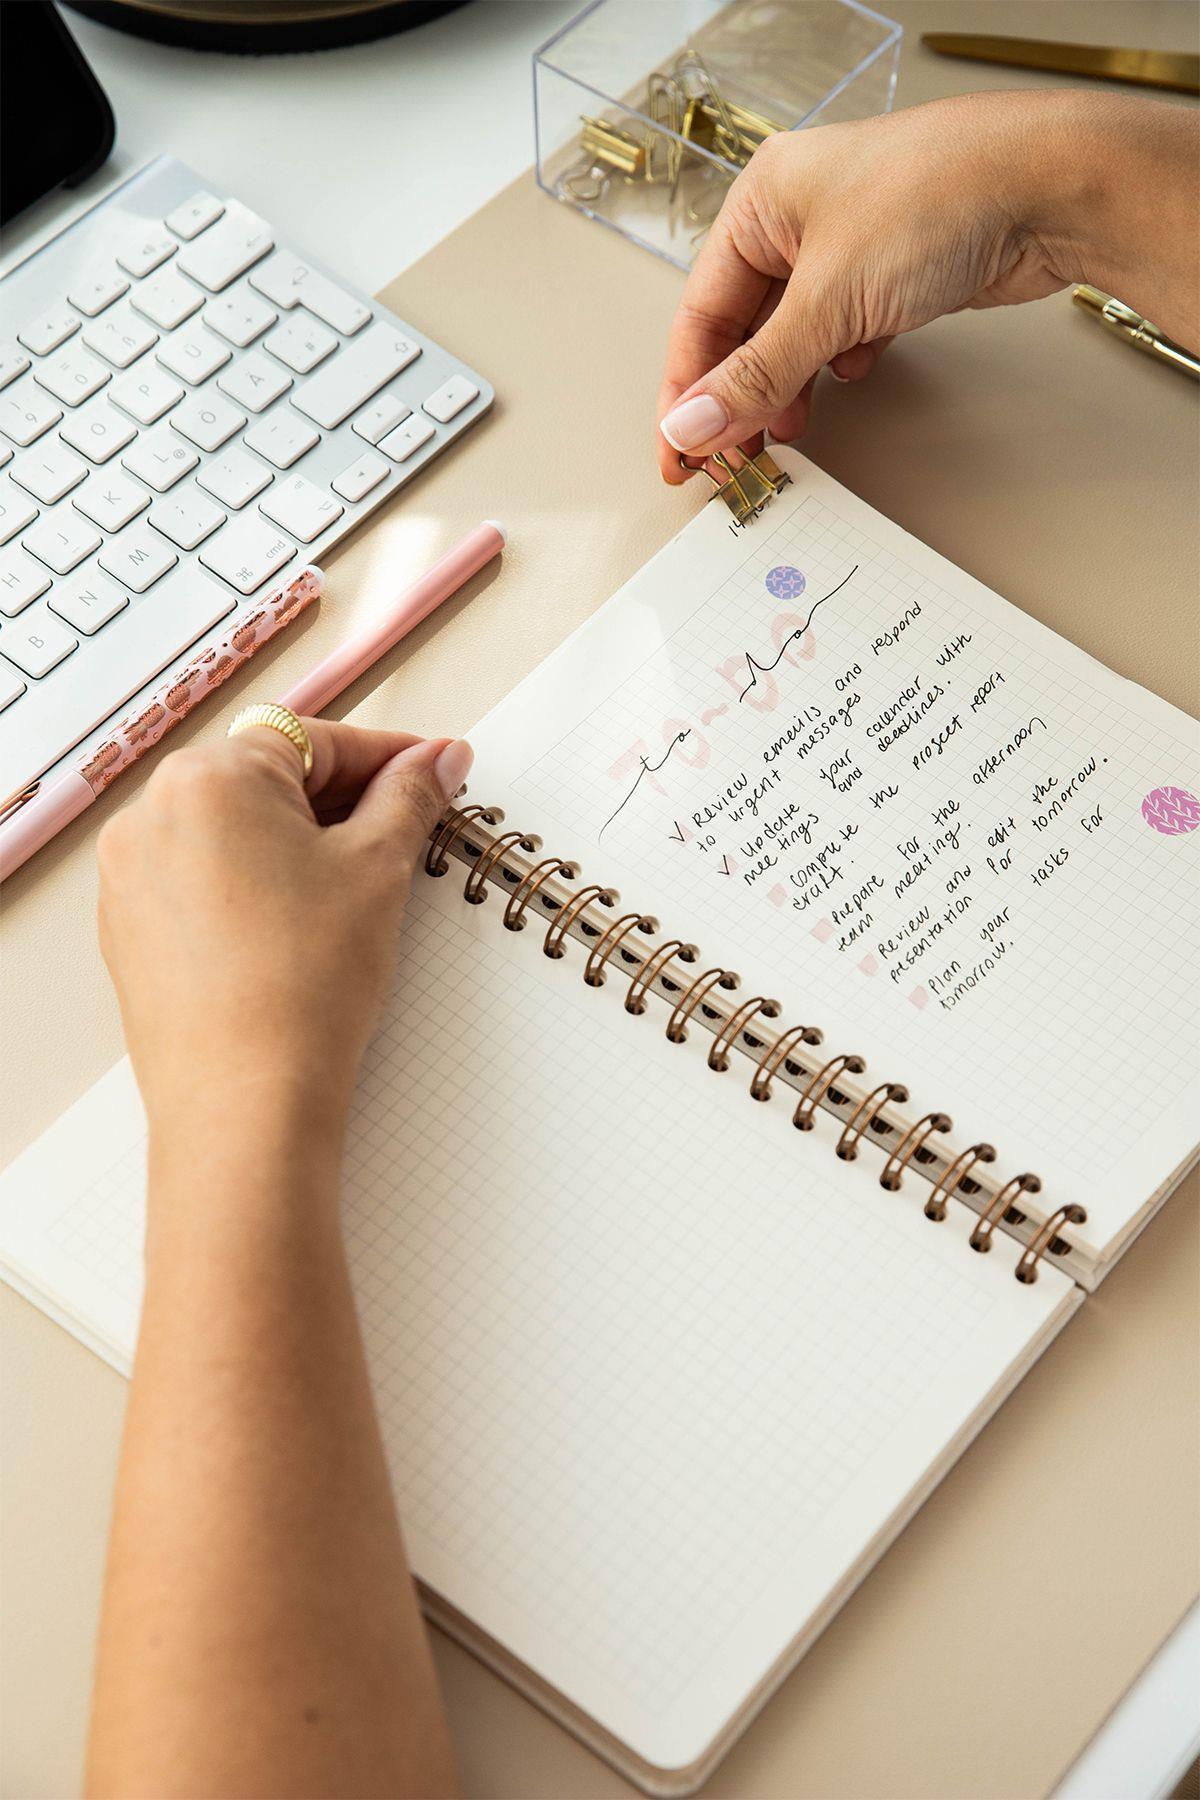 to do
TO-DO
✓ Review emails and respond
to urgent messages
✓ Update your calendar with
meetings and deadlines.
Compute the progect report
draft.
Prepare for the afternoon
team meating.
Review and edit the
presentation for tomorrow.
Plan your tasks for
tomorrow.
cmd
⌘
Ü
Ö
Ä
ß
P
O
L
@
I
K
J
M
N
H
B
9